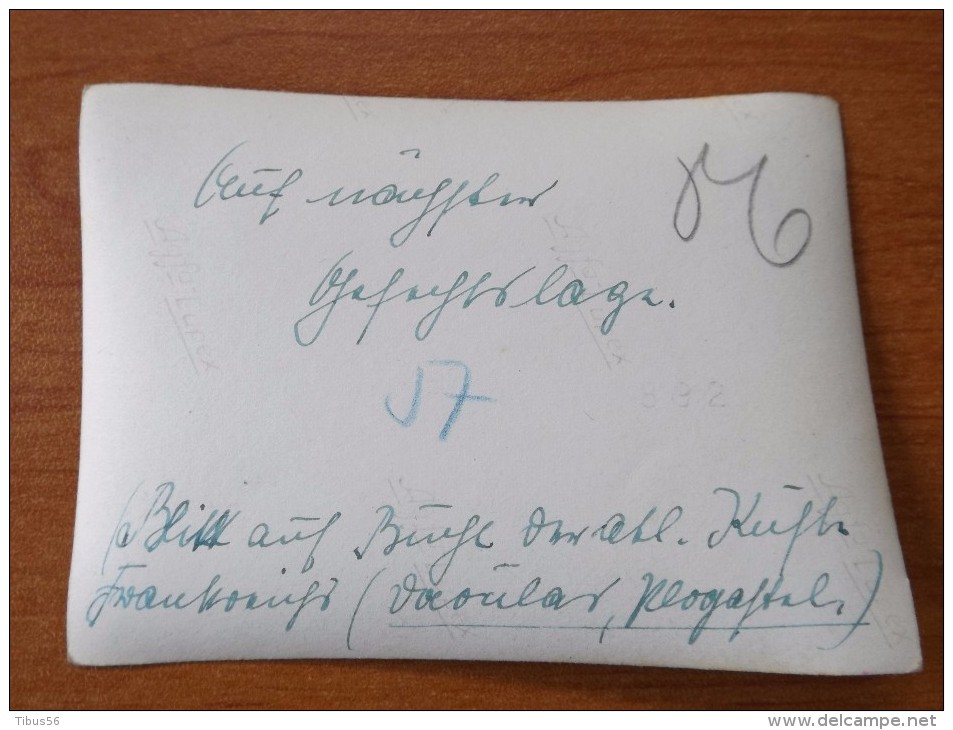 Auf nächster
Gefechtslage.
57
892
Blick auf Bucht der atl. Küste
Frankreichs (Daoulas, Plogastel.)
Tibus56
www.delcampe.net